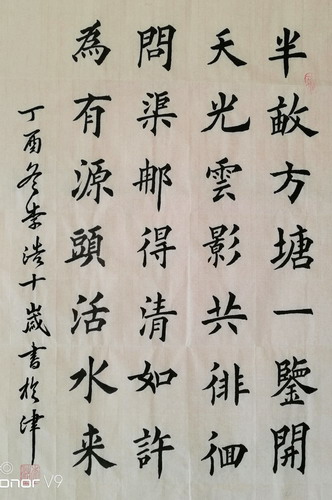 半畝方塘一鑒開
天光雲影共徘徊
問渠那得清如許
為有源頭活水来
丁酉冬李浩十歲書於津
honor V9